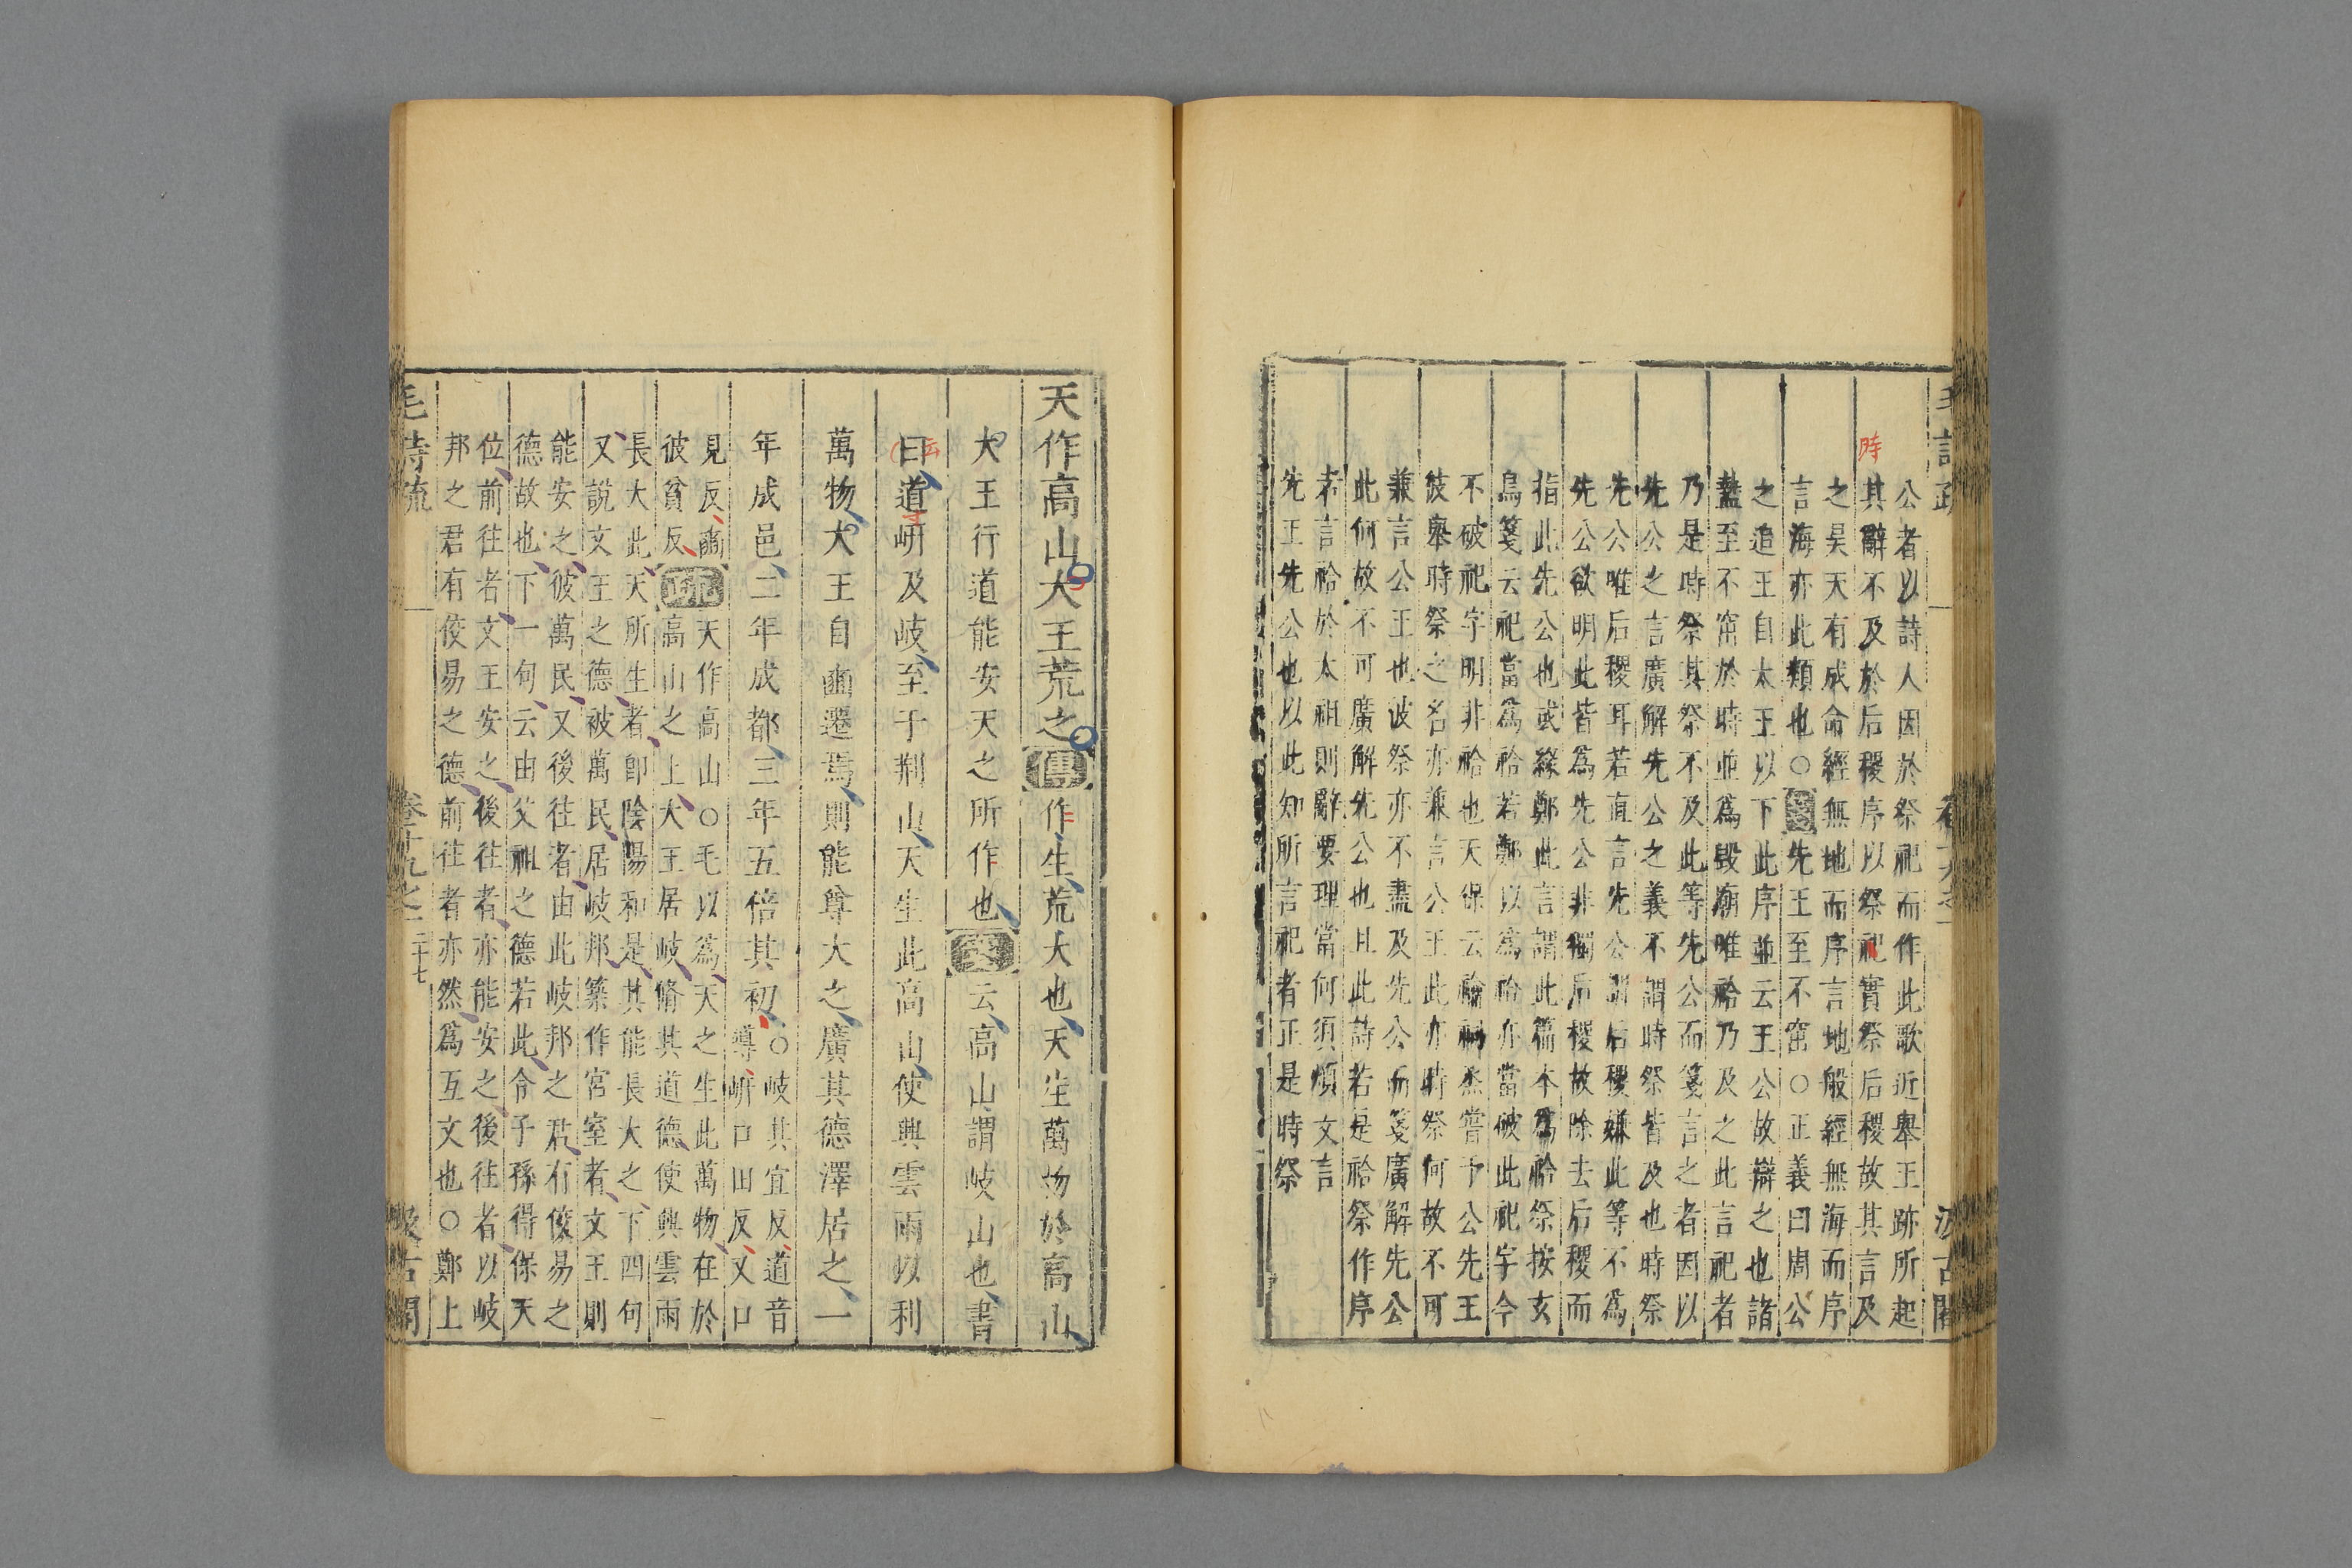 毛詩疏 卷十九之一 汲古閣
公者以詩人因於祭祀而作此歌近舉王跡所起
其辭不及於后稷序以祭祀實祭后稷故其言及
時
之昊天有成命經無地而序言地般經無海而序
言海亦此類也○箋先王至不窋○正義曰周公
之追王自太王以下此序並云王公故辯之也諸
盩至不窋於時並爲毀廟唯祫乃及之此言祀者
乃是時祭其祭不及此等先公而箋言之者因以
先公之言廣解先公之義不謂時祭皆及也時祭
先公唯后稷耳若直言先公謂后稷嫌此等不爲
先公欲明此皆爲先公非獨后稷故除去后稷而
指此先公也或緣鄭此言謂此篇本爲祫祭按玄
鳥箋云祀當爲祫若鄭以爲祫亦當破此祀字今
不破祀字明非祫也天保云禴祠烝嘗于公先王
彼舉時祭之名亦兼言公王此亦時祭何故不可
兼言公王也彼祭亦不盡及先公而箋廣解先公
此何故不可廣解先公也且此詩若是祫祭作序
者言祫於太祖則辭要理當何須煩文言
先王先公也以此知所言祀者正是時祭
天作高山大王荒之傳作生荒大也天生萬物於高山
大王行道能安天之所作也箋云高山謂岐山也書
曰道岍及岐至于荆山天生此高山使興雲雨以利
云
萬物大王自豳遷焉則能尊大之廣其德澤居之一
年成邑二年成都三年五倍其初○岐其宜反道音
導岍口田反又口
見反豳
彼貧反疏天作高山○毛以爲天之生此萬物在於
高山之上大王居岐脩其道德使興雲雨
長大此天所生者卽陰陽和是其能長大之下四句
又說文王之德被萬民居岐邦築作宮室者文王則
能安之彼萬民又後往者由此岐邦之君有佼易之
德故也下一句云由父祖之德若此令子孫得保天
位前往者文王安之後往者亦能安之後往者以岐
邦之君有佼易之德前往者亦然爲互文也○鄭上
毛詩疏 卷十九之二 二十七 汲古閣